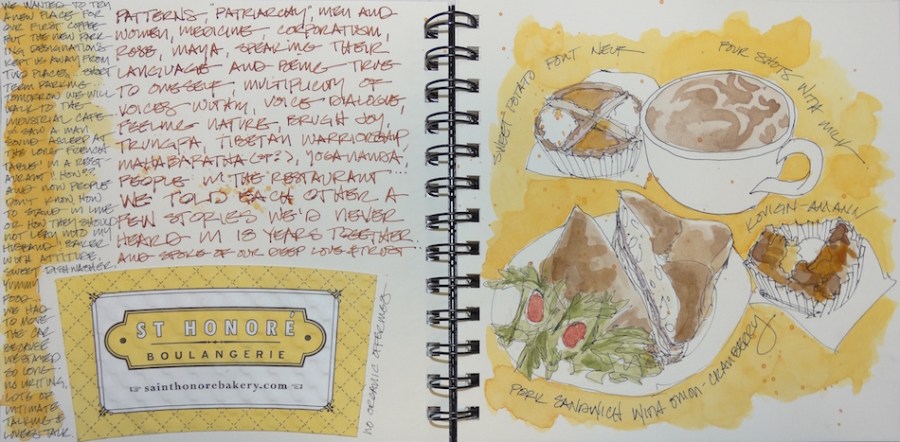 WE WANTED TO TRY
A NEW PLACE FOR
OUR FIRST COFFEE
BUT THE NEW PARK
ING DESIGNATIONS
KEPT US AWAY FROM
TWO PLACES. SHORT
TERM PARKING
TOMORROW WE WILL
TALK TO THE
INDUSTRIAL CAFE
I SAW A MAN
SOUND ASLEEP AT
THE LONG FRENCH
TABLE IN A REST-
AURANT! HOW?
AND HOW PEOPLE
DON'T KNOW HOW
TO STAND IN LINE
OR HOW THEY SHOULD
NOT LEAN INTO MY
HUSBAND! BAKER
WITH ATTITUDE.
SWEET DISHWASHER.
YUMMY
FOOD
WE HAD
TO MOVE
THE CAR
BECAUSE
WE STAYED
SO LONG
NO WRITING.
LOTS OF
INTIMATE
TALKING &
LOVERS TALK.
PATTERNS, "PATRIARCHY," MEN AND
WOMEN, MEDICINE, CORPORATISM,
ROSE, MAYA, SPEAKING THEIR
LANGUAGE AND BEING TRUE
TO ONESELF, MULTIPLICITY OF
VOICES WITHIN, VOICE DIALOGUE,
FEELING NATURE, BRUGH JOY,
TRUNGPA, TIBETAN WARRIORSHIP,
MAHABARATHA (SP?), YOGANANDA,
PEOPLE IN THE RESTAURANT...
WE TOLD EACH OTHER A
FEW STORIES WE'D NEVER
HEARD IN 18 YEARS TOGETHER...
AND SPOKE OF OUR DEEP LOVE & TRUST
ST HONORÉ
BOULANGERIE
sainthonorebakery.com
NO ORGANIC
SWEET POTATO PONT NEUF
FOUR SHOTS WITH MILK
KOUIGN-AMANN
PORK SANDWICH WITH ONION-CRANBERRY